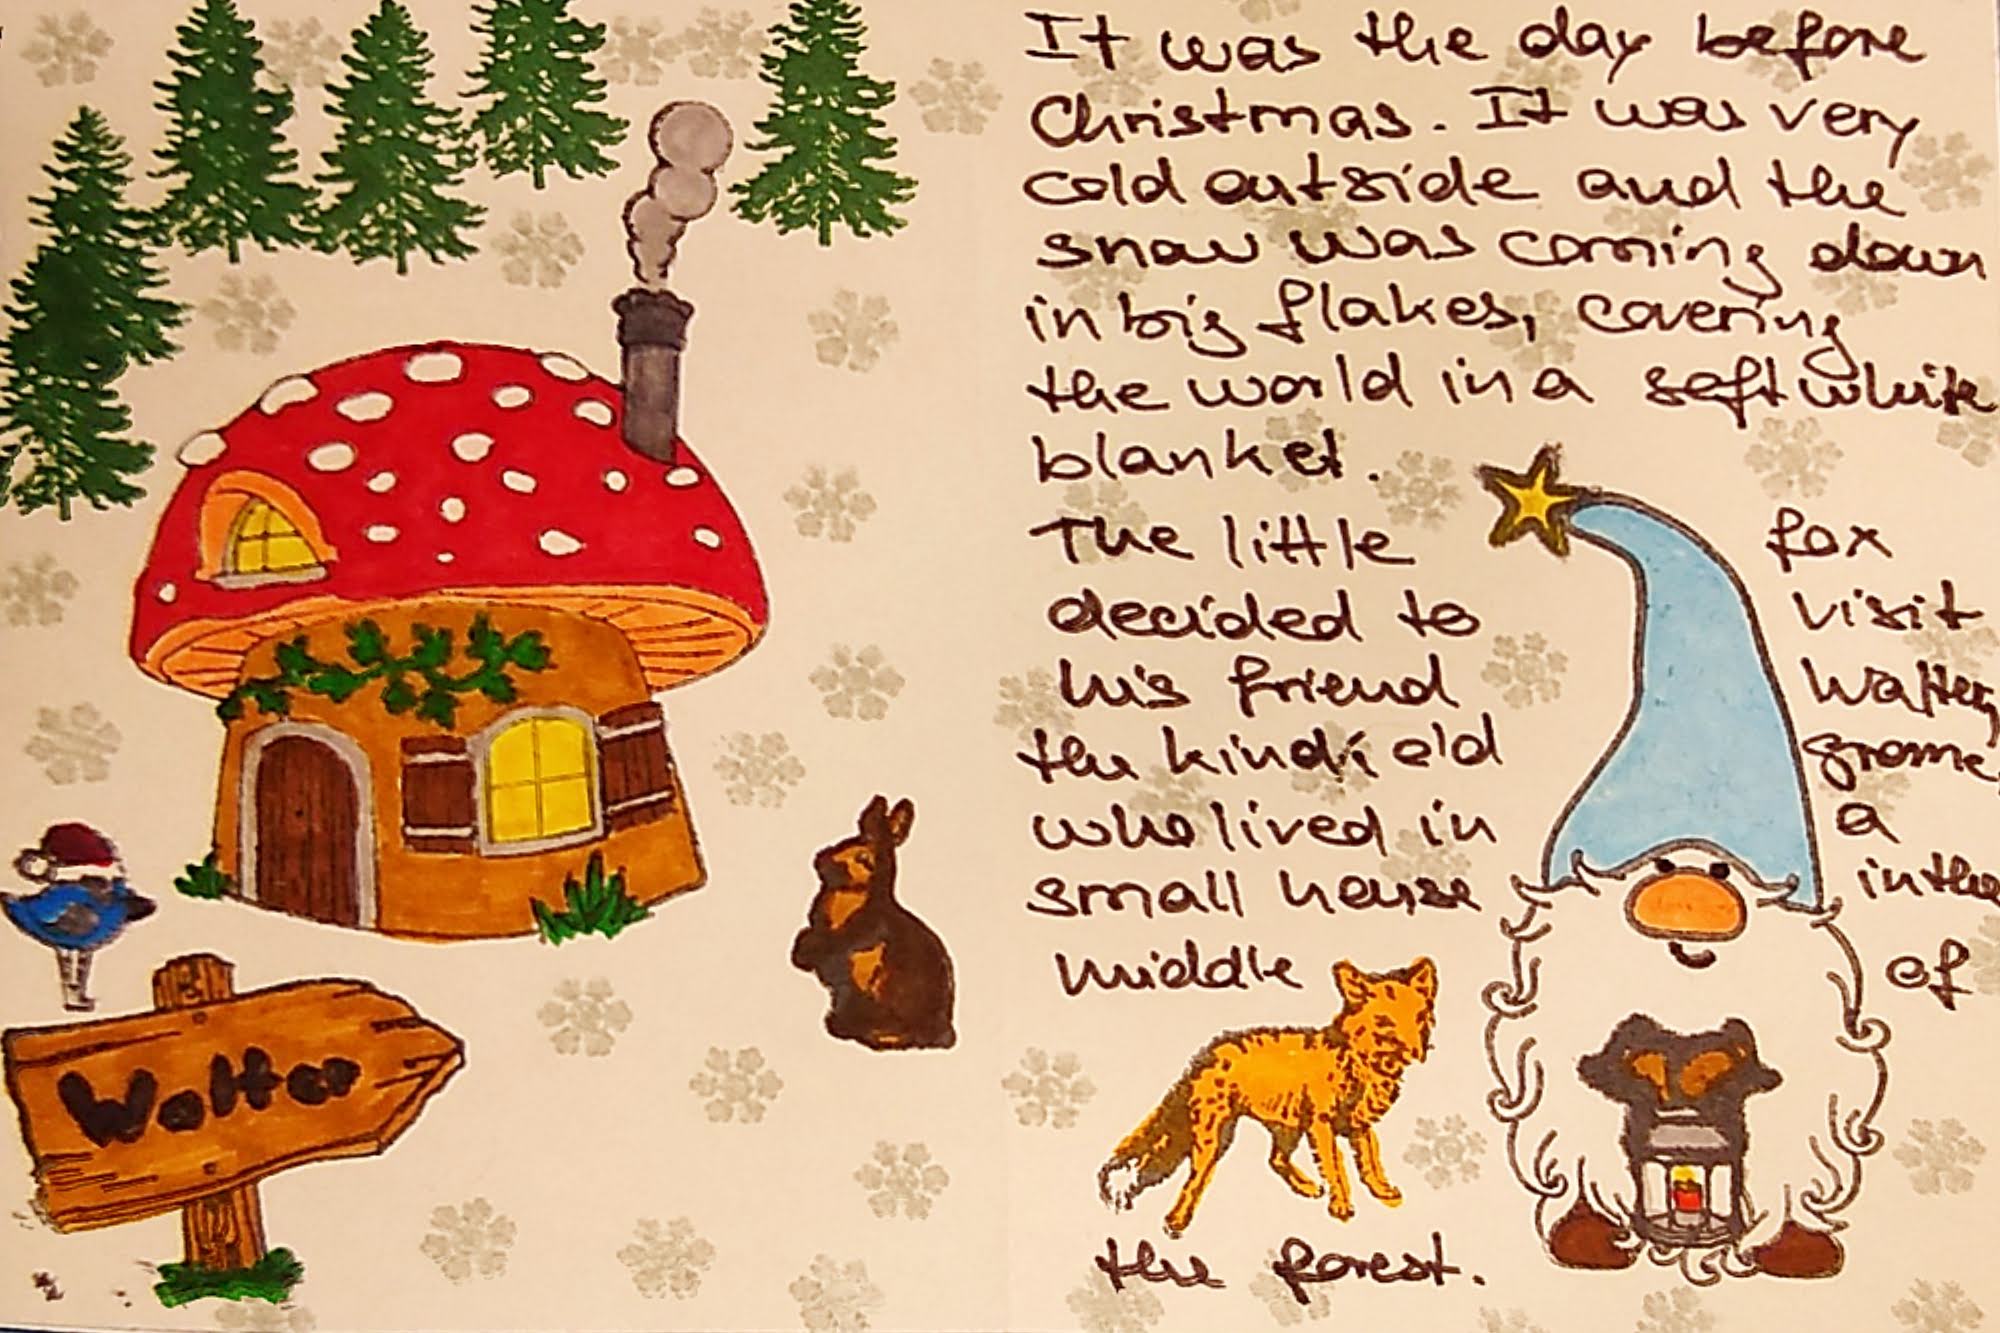 Walter
It was the day before
Christmas. It was very
cold outside and the
snow was coming down
in big flakes, covering
the world in a soft white
blanket.
The little fox
decided to visit
his friend Walter,
the kind old gnome,
who lived in a
small house in the
middle of
the forest.